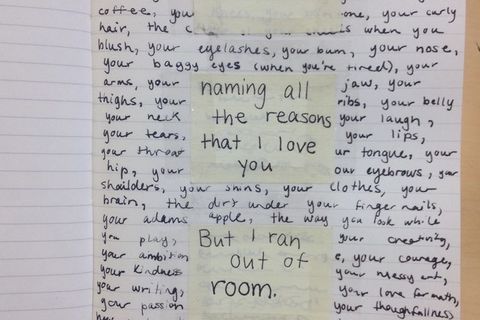 coffee, your one, your curly
hair, the is when you
blush, your eyelashes, your bum, your nose,
your baggy eyes (when you're tired), your
arms, your jaw, your
thighs, your ribs, your belly
your neck your laugh,
your tears, your lips,
your throat ur tongue, your
hip, your our eyebrows, your
shoulders, your shins, your clothes, your
brain, the dirt under your finger nails,
your adams apple, the way you look while
you play, your creativity,
your ambition e, your courage,
your kindness your messy art,
your writing, your love for
your passion your thoughtfulness,
naming all
the reasons
that I love
you
But I ran
out of
room.